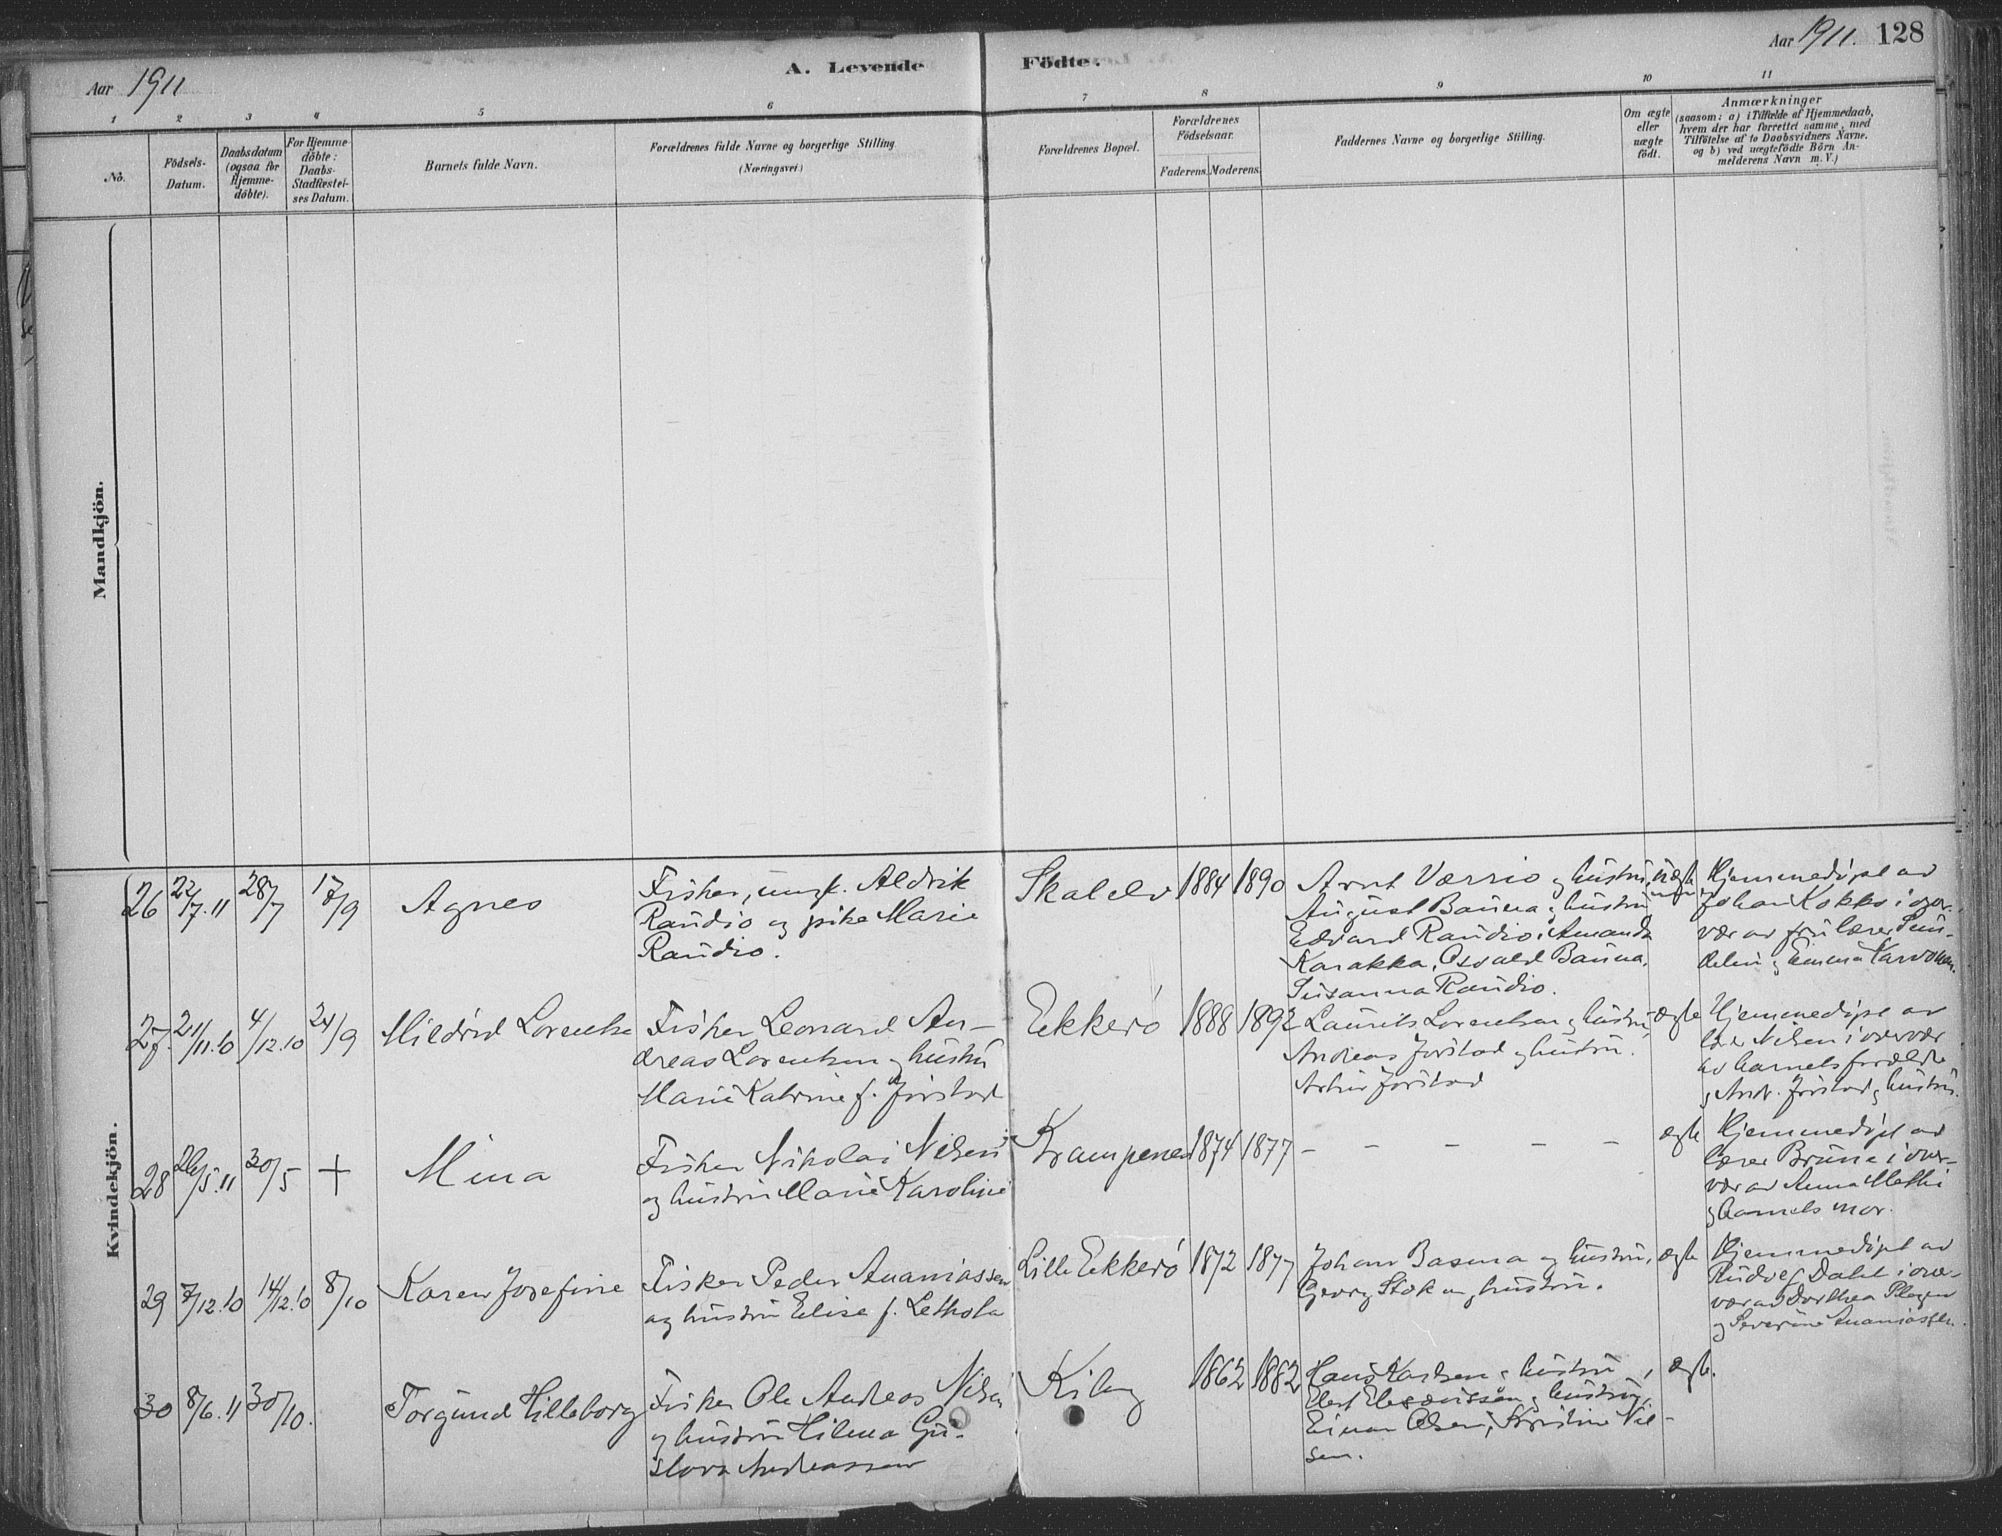 Aar 1911
A. Levende
Födte.
Aar 1911. 128
1 2 3 4 5 6 7 8 9 10 11
No.
Födsels-
Datum.
Daabsdatum
(ogsaa for
Hjemme-
döbte).
For Hjemme-
döbte:
Daabs-
Stadfæstel-
ses Datum.
Barnets fulde Navn.
Forældrenes fulde Navne og borgerlige Stilling
(Næringsvei)
Forældrenes Bopæl.
Forældrenes
Födselsaar.
Faderens. Moderens.
Faddernes Navne og borgerlige Stilling.
Om ægte
eller
uægte
födt.
Anmærkninger
(saasom: a) i Tilfælde af Hjemmedaab,
hvem der har forrettet samme, med
Tilföielse af to Daabsvidners Navne.
og b) ved uægtefödte Börn An-
melderens Navn m. V.)
Mandkjön.
Kvindekjön.
26 22/7.11 28/7 17/9 Agnes
Fisker, ungk. Aldrik
Raudio og pike Marie
Raudio.
Skalelv 1884 1890
Arnt Værrio og hustru,
August Bauna og hustru
Edvard Raudio, Amanda
Karakka, Osvald Bauna,
Susanna Raudio.
uægte
Hjemmedöpt av
Johan Kokko i over-
vær av fru lærer
og Emma Karvonen.
27. 21/11.10 4/12.10 24/9 Mildrid Lorentse
Fisker Leonard An-
dreas Lorentsen og hustru
Marie Katrine f. Jörstad
Ekkerö 1888 1892
Laurits Lorentsen og hustru,
Andreas Jorstad og hustru.
Artur Jorstad
ægte
Hjemmedöpt av
lærer Nilsen i overvær
av barnets forældre
og Andr. Jörstad og hustru.
28 26/5.11 30/5 + Mina
Fisker Nikolai Nilsen
og hustru Marie Karoline
Krampenes 1874 1877
– – – – –
ægte
Hjemmedöpt av
lærer Bruun i over-
vær av Anna Mathi
og barnets mor.
29 7/12.10 14/12.10 8/10 Karen Josefine
Fisker Peder Ananiassen
og hustru Elise f. Lethola
Lille Ekkerö 1872 1877
Johan Basma og hustru,
Georg Stok og hustru.
ægte
Hjemmedöpt av
Rudolf Dahl i over-
vær av Dorthea
og Severine Ananiassen.
30 8/6.11 30/10. Torgund Hilleborg
Fisker Ole Andreas Nilsen
og hustru Hilma Gu-
stava Andreassen
Kiby 1862 1882
Hans Karlsen og hustru,
og hustru,
Einar Olsen, Kristine Nil-
sen.
ægte.